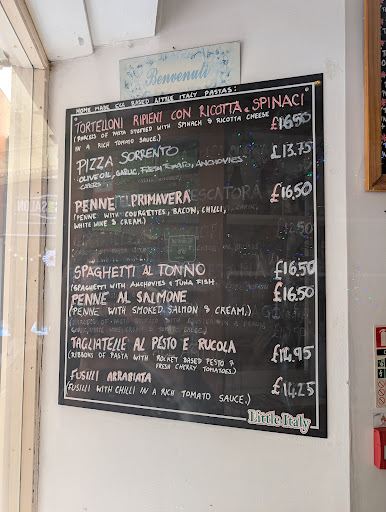 Benvenuti
HOME MADE EGG BASED LITTLE ITALY PASTAS:
TORTELLONI RIPIENI CON RICOTTA e SPINACI
(PARCELS OF PASTA STUFFED WITH SPINACH & RICOTTA CHEESE £16,50
IN A RICH TOMATO SAUCE.)
PIZZA SORRENTO £13.75
OLIVE OIL, GARLIC, FRESH TOMATO, ANCHOVIES
CAPERS
PENNE PRIMAVERA £16,50
(PENNE WITH COURGETTES, BACON, CHILLI,
WHITE WINE & CREAM.)
SPAGHETTI AL TONNO £16.50
(SPAGHETTI WITH ANCHOVIES & TUNA FISH.
PENNE AL SALMONE £16.50
(PENNE WITH SMOKED SALMON & CREAM.)
TAGLIATELLE AL PESTO E RUCOLA £14.95
(RIBBONS OF PASTA WITH ROCKET BASED PESTO &
FRESH CHERRY TOMATOES.)
FUSILLI ARRABIATA £14.25
(FUSILLI WITH CHILLI IN A RICH TOMATO SAUCE.)
Little Italy